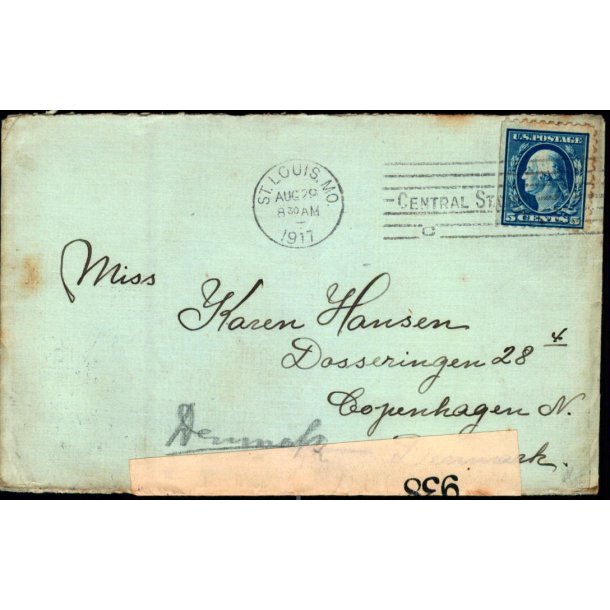 U.S. POSTAGE
5 CENTS 5
ST. LOUIS, MO.
AUG 29
8 30 AM
1917
CENTRAL ST
C
Miss
Karen Hansen
Dosseringen 28 4
Copenhagen N.
Denmark
Denmark.
938